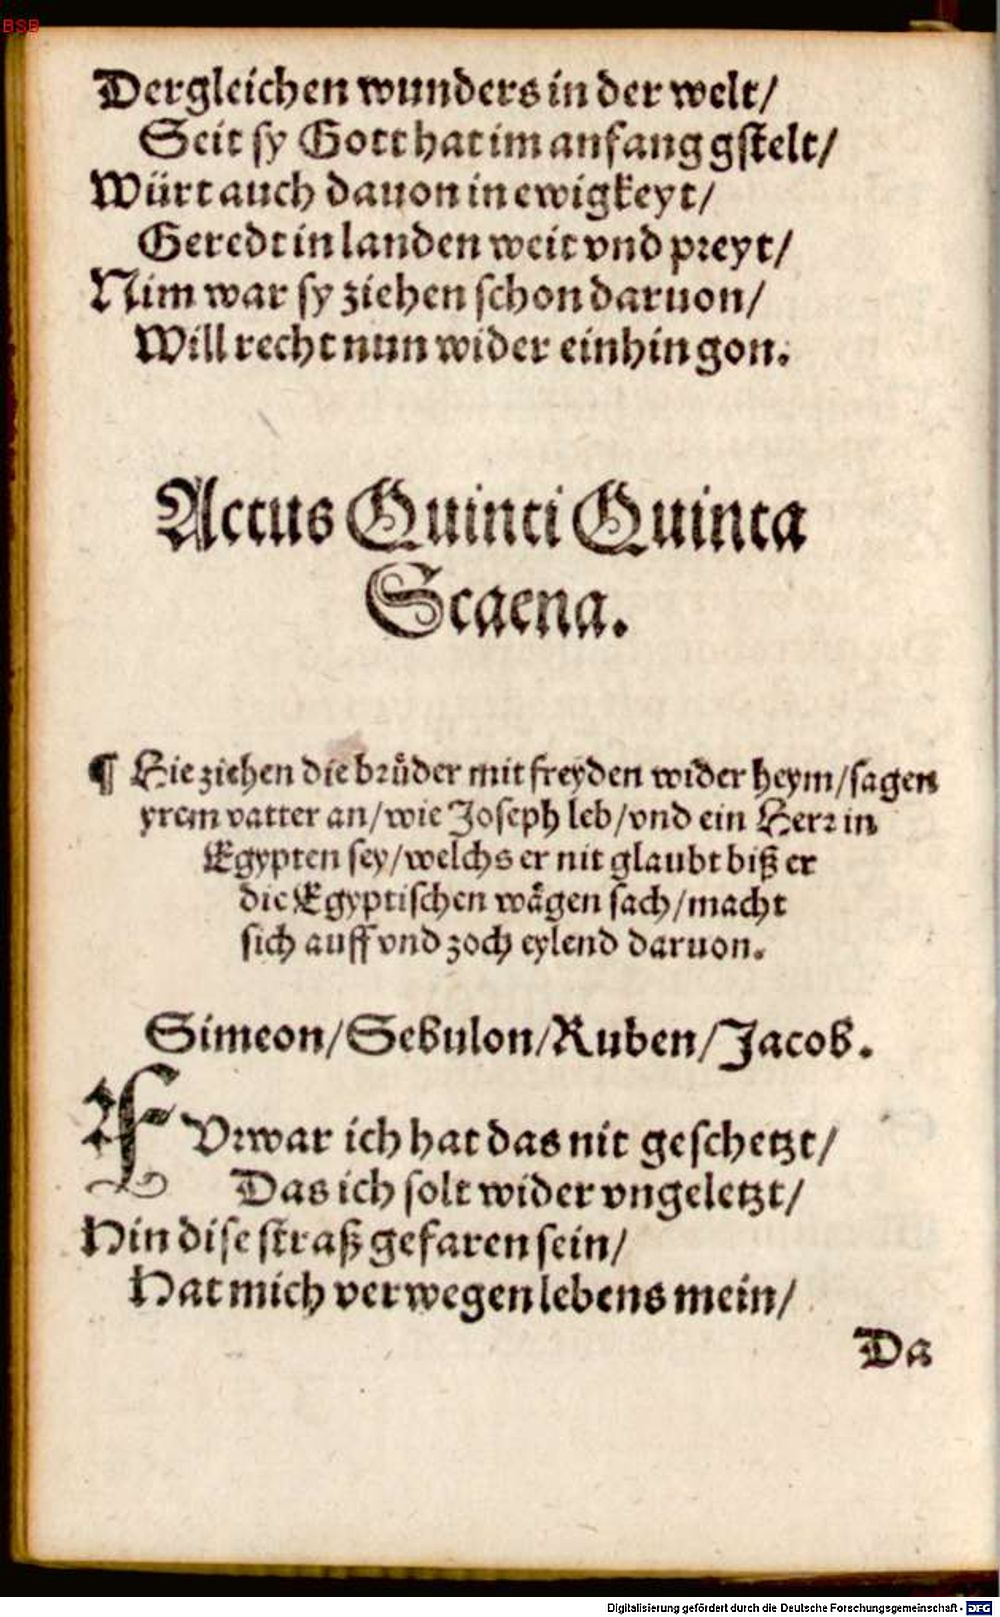 BSB
Dergleichen wunders in der welt/
Seit sy Gott hat im anfang gstelt/
Würt auch dauon in ewigkeyt/
Geredt in landen weit vnd preyt/
Nim war sy ziehen schon daruon/
Will recht nun wider einhin gon.
Actus Quinti Quinta
Scaena.
¶ Hie ziehen die brůder mit freyden wider heym/sagen
yrem vatter an/wie Joseph leb/vnd ein Herr in
Egypten sey/welchs er nit glaubt biß er
die Egyptischen wägen sach/macht
sich auff vnd zoch eylend daruon.
Simeon/Sebulon/Ruben/Jacob.
FVrwar ich hat das nit geschetzt/
Das ich solt wider vngeletzt/
Hin dise straß gefaren sein/
Hat mich verwegen lebens mein/
Da
Digitalisierung gefördert durch die Deutsche Forschungsgemeinschaft - DFG